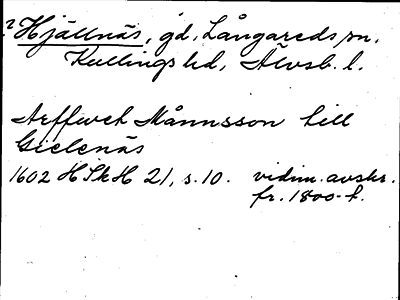 ? Hjällnäs, gd, Långareds sn.
Kullings hd, Älvsb. l.
Arffwet Månnsson till
Gielenäs
1602 HSkH 21, s. 10. vidim. avskr.
fr. 1800-t.